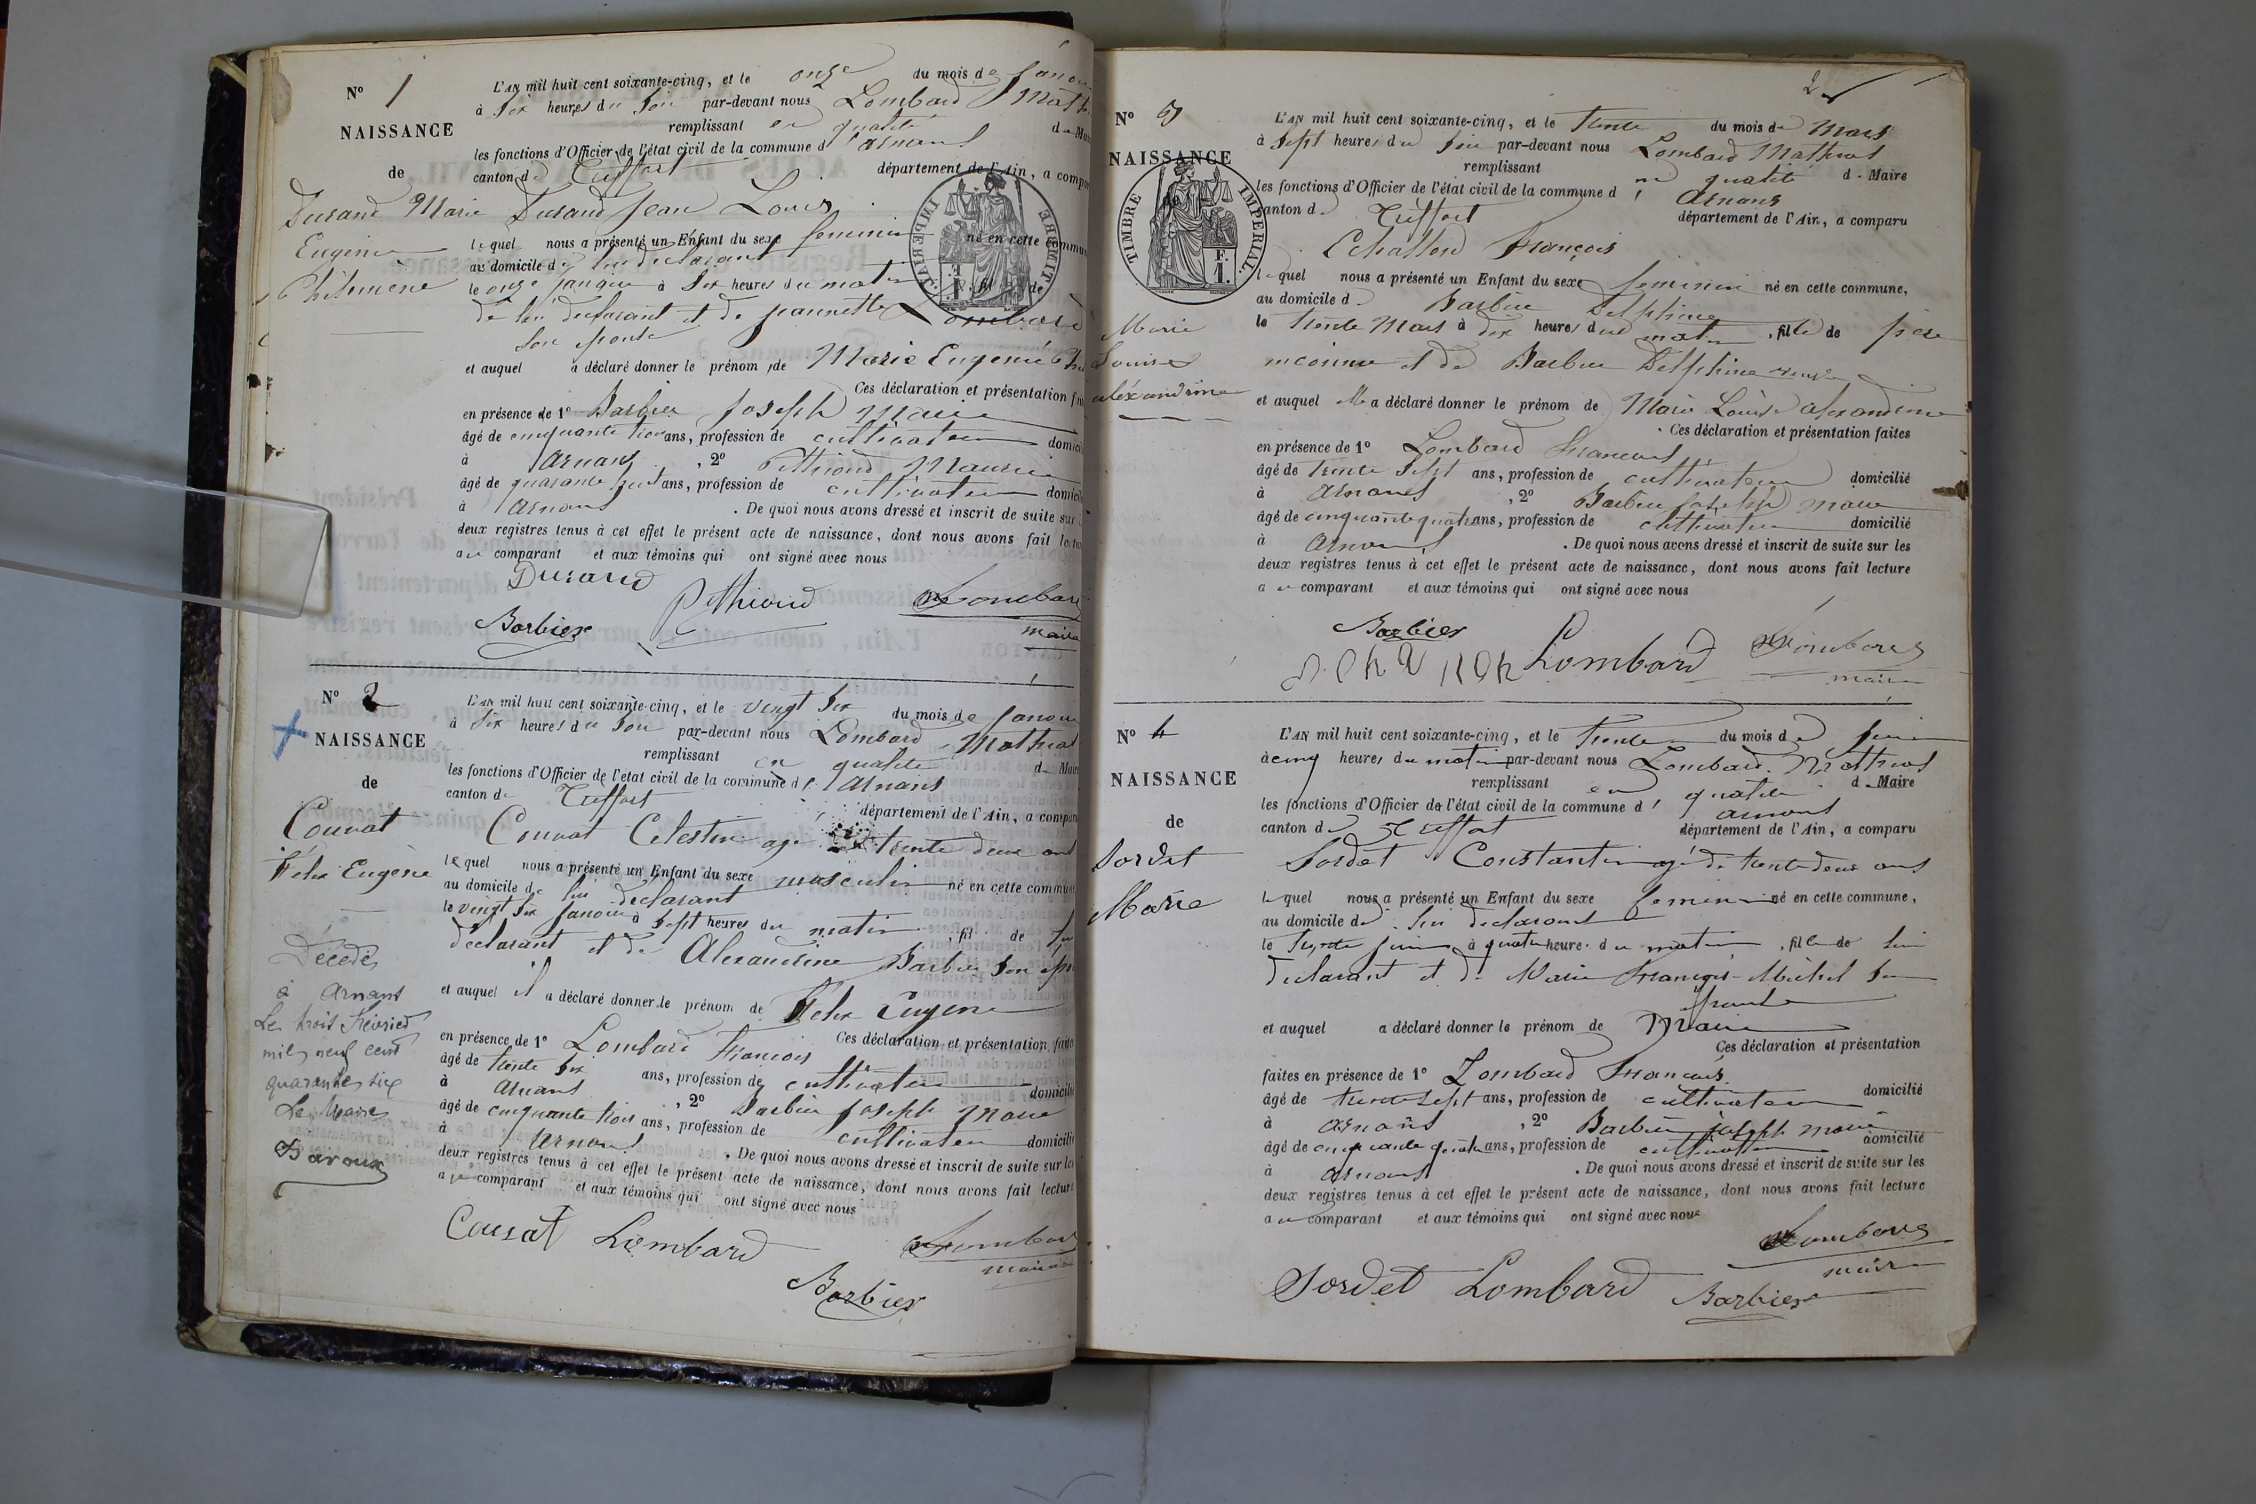 N° 1
NAISSANCE
de
Durand Marie
Eugénie
Philomène
L'AN mil huit cent soixante-cinq, et le onze du mois de janvier
à six heures du soir par-devant nous Lombard
remplissant en qualité de Maire
les fonctions d'Officier de l'état civil de la commune d'Arnans
canton de Treffort département de l'Ain, a comparu
Durand Jean Louis
lequel nous a présenté un Enfant du sexe feminin né en cette commune
au domicile de lui declarant
le onze janvier à six heures du matin
de lui declarant et de jeannette Lombard
son epouse
et auquel a déclaré donner le prénom de Marie Eugenie
Ces déclaration et présentation
en présence de 1° Barbier joseph Marie
âgé de cinquante trois ans, profession de cultivateur
à Arnans, 2° Péthiond Maurice
âgé de quarante ans, profession de cultivateur
à Arnans. De quoi nous avons dressé et inscrit de suite sur
deux registres tenus à cet effet le présent acte de naissance, dont nous avons fait
au comparant et aux témoins qui ont signé avec nous
Durand
Barbier
maire
N° 2
NAISSANCE
de
Couvat
Félix Eugène
Décédé
à Arnans
Le trois Février
mil neuf cent
quarante six
Le Maire
L'AN mil huit cent soixante-cinq, et le vingt six du mois de janvier
à six heures du soir par-devant nous Lombard Mathias
remplissant en qualité de Maire
les fonctions d'Officier de l'état civil de la commune d'Arnans
canton de Treffort
département de l'Ain, a comparu
Couvat Celestin agé de trente deux ans
lequel nous a présenté un Enfant du sexe masculin né en cette commune
au domicile de lui declarant
le vingt six janvier à sept heures du matin, fils de lui
declarant et de Alexandrine Barbier son
et auquel il a déclaré donner le prénom de Félix Eugene
Ces déclaration et présentation faites
en présence de 1° Lombard François
âgé de trente six ans, profession de cultivateur domicilié
à Arnans, 2° Barbier joseph Marie
âgé de cinquante trois ans, profession de cultivateur domicilié
à Arnans. De quoi nous avons dressé et inscrit de suite sur les
deux registres tenus à cet effet le présent acte de naissance, dont nous avons fait lecture
au comparant et aux témoins qui ont signé avec nous
Couvat Lombard
maire
Barbier
2
N° 3
NAISSANCE
de
TIMBRE IMPERIAL
Marie
Louise
Alexandrine
L'AN mil huit cent soixante-cinq, et le trente du mois de Mars
à sept heures du soir par-devant nous Lombard Mathias
remplissant en qualité de Maire
les fonctions d'Officier de l'état civil de la commune d'Arnans
canton de Treffort
département de l'Ain, a comparu
François
lequel nous a présenté un Enfant du sexe feminin né en cette commune,
au domicile de Barbier Delphine
le trente Mars à dix heures du matin, fille de père
inconnu et de Barbier Delphine
et auquel elle a déclaré donner le prénom de Marie Louise Alexandrine
Ces déclaration et présentation faites
en présence de 1° Lombard François
âgé de trente sept ans, profession de cultivateur domicilié
à Arnans, 2° Barbier joseph Marie
âgé de cinquante quatre ans, profession de cultivateur domicilié
à Arnans. De quoi nous avons dressé et inscrit de suite sur les
deux registres tenus à cet effet le présent acte de naissance, dont nous avons fait lecture
au comparant et aux témoins qui ont signé avec nous
Barbier
Lombard
maire
N° 4
NAISSANCE
de
Sordet
Marie
L'AN mil huit cent soixante-cinq, et le trente du mois de juin
à cinq heures du matin par-devant nous Lombard Mathias
remplissant en qualité de Maire
les fonctions d'Officier de l'état civil de la commune d'Arnans
canton de Treffort
département de l'Ain, a comparu
Sordet Constantin agé de trente deux ans
lequel nous a présenté un Enfant du sexe feminin né en cette commune,
au domicile de lui declarant
le trente juin à quatre heures du matin, fille de lui
declarant et de Marie Michel son
epouse
et auquel a déclaré donner le prénom de Marie
Ces déclaration et présentation
faites en présence de 1° Lombard François
âgé de trente sept ans, profession de cultivateur domicilié
à Arnans, 2° Barbier joseph Marie
âgé de cinquante quatre ans, profession de cultivateur domicilié
à Arnans. De quoi nous avons dressé et inscrit de suite sur les
deux registres tenus à cet effet le présent acte de naissance, dont nous avons fait lecture
au comparant et aux témoins qui ont signé avec nous
Sordet Lombard
maire
Barbier